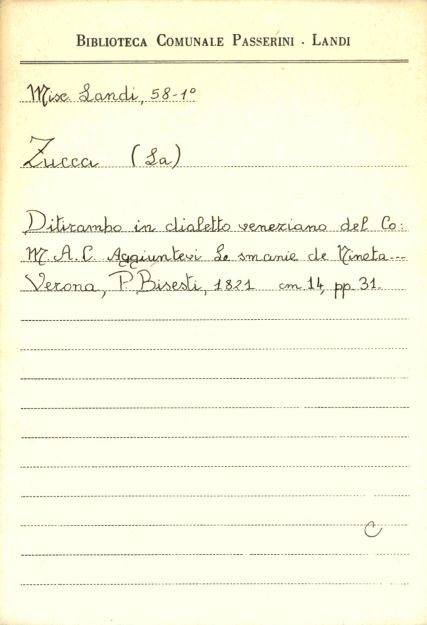 BIBLIOTECA COMUNALE PASSERINI · LANDI
Misc Landi, 58-1º
Zucca (La)
Ditirambo in dialetto veneziano del Co:
M. A. C. Aggiuntevi Le smanie de Nineta...
Verona, P. Bisesti, 1821 cm 14, pp. 31.
C